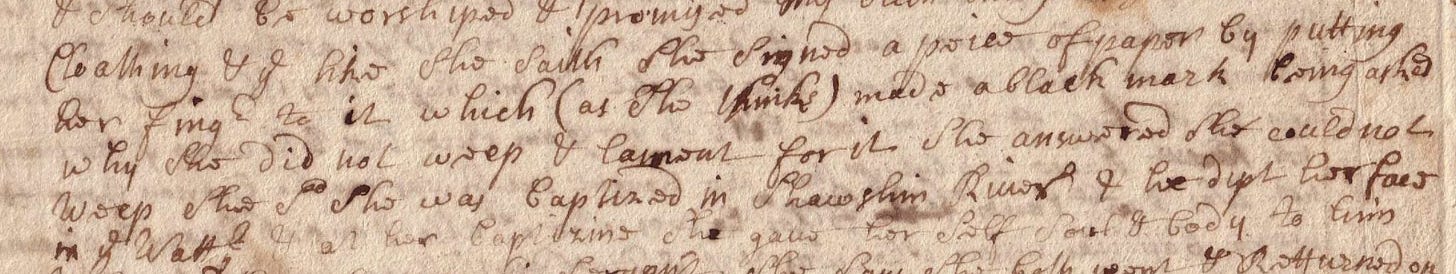 & should be worshiped & promised
Cloathing & ye like she saith she signed a peice of paper by putting
her fingr to it which (as she thinks) made a black mark being asked
why she did not weep & lament for it she answered she could not
weep she sd she was baptized in Shawshin River & he dipt her face
in ye Wattr & at her baptizing she gave her self soul & body to him
she she both went & Returned on